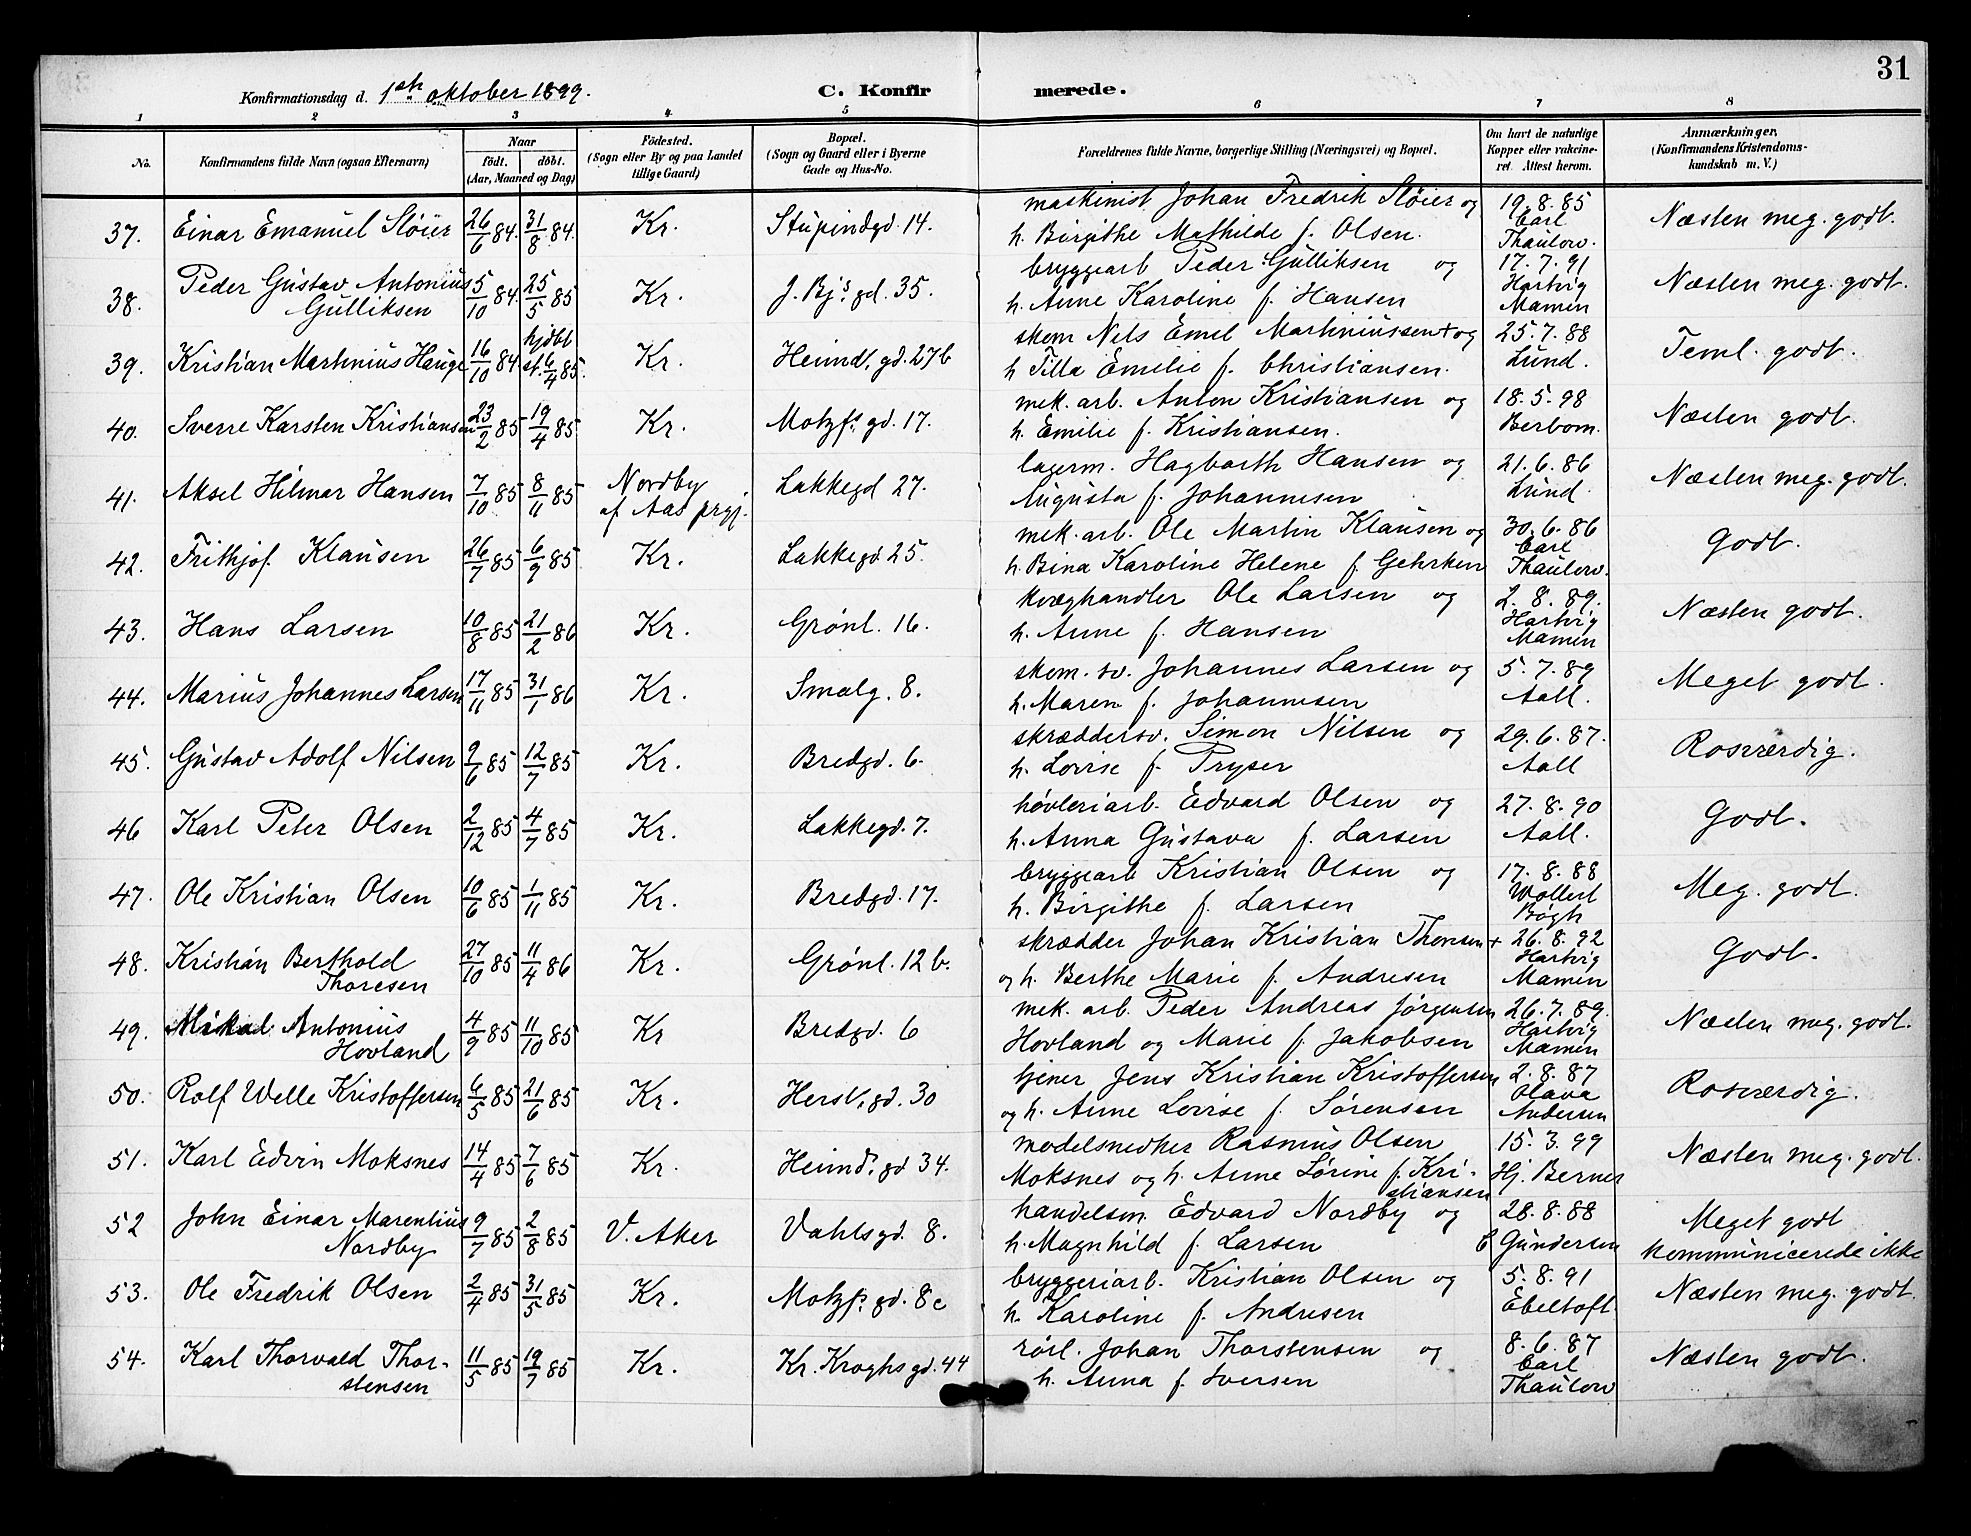 31
Konfirmationsdag d. 1ste oktober 1899. C. Konfirmerede.
1 2 3 4 5 6 7 8
No. Konfirmandens fulde Navn (ogsaa Efternavn) Naar født. døbt. (Aar, Maaned og Dag) Fødested. (Sogn eller By og paa Landet tillige Gaard) Bopæl. (Sogn og Gaard eller i Byerne Gade og Hus-No. Forældrenes fulde Navne, borgerlige Stilling (Næringsvei) og Bopæl. Om havt de naturlige Kopper eller vakcineret. Attest herom. Anmærkninger, (Konfirmandens Kristendomskundskab m. V.)
37. Einar Emanuel Sløier 26/6 84. 31/8 84. Kr. Stupindgd. 14. maskinist Johan Fredrik Sløier og h. Birgithe Mathilde f. Olsen. 19.8.85 Carl Thaulow. Næsten meg. godt.
38. Peder Gustav Antonius Gulliksen 5/10 84 25/5 85 Kr. J. Bjs gd. 35. bryggearb Peder Gulliksen og h. Anne Karoline f. Hansen 17.7.91 Hartvig Mamen Næsten meg. godt.
39. Kristian Martinius Hauge 16/10 84 hjdbt st. 6/4 85. Kr. Heimd. gd. 27b skom Nels Emil Martiniussen + og h Tilla Emelie f. Christiansen. 25.7.88 Lund. Teml. godt.
40. Sverre Karsten Kristiansen 23/2 85 19/4 85 Kr. Motzf. gd. 17. mek. arb. Anton Kristiansen og h. Emilie f. Kristiansen. 18.5.98 Berbom. Næsten godt.
41. Aksel Hilmar Hansen 7/10 85 8/11 85 Nordby af Aas prgj. Lakkegd 27. lagerm. Hagbarth Hansen og Augusta f. Johannesen 21.6.86 Lund. Næsten meg. godt.
42. Frithjof Klausen 26/7 85 6/9 85 Kr. Lakkegd 25. mek. arb. Ole Martin Klausen og h. Bina Karoline Helene f. Gehrken 30.6.86 Carl Thaulow. Godt.
43. Hans Larsen 10/8 85 21/2 86 Kr. Grønl. 16. kvæghandler Ole Larsen og h. Anne f. Hansen 2.8.89. Hartvig Mamen Næsten godt.
44. Marius Johannes Larsen 17/11 85 31/1 86 Kr. Smalg. 8. skom. sv. Johannes Larsen og h. Maren f. Johannesen 5.7.89 Aall. Meget godt.
45. Gustav Adolf Nilsen 9/6 85 12/7 85 Kr. Bredgd. 6. skræddersv. Simon Nilsen og h. Lovise f. Pryser 29.6.87. Aall Rosværdig.
46 Karl Peter Olsen 2/12 85 4/7 85 Kr. Lakkegd. 7. høvleriarb. Edvard Olsen og h. Anna Gustava f. Larsen 27.8.90 Aall. Godt.
47. Ole Kristian Olsen 10/6 85 1/11 85 Kr. Bredgd. 17. bryggearb Kristian Olsen og h. Birgithe f. Larsen 17.8.88 Wollert Bøgh Meg. godt.
48. Kristian Berthold Thoresen 27/10 85 11/4 86 Kr. Grønl. 12b. skrædder Johan Kristian Thoresen + og h. Berthe Marie f. Andresen 26.8.92 Hartvig Mamen Godt.
49. Mikal Antonius Hovland 4/9 85 11/10 85 Kr Bredgd. 6 mek. arb. Peder Andreas Jørgensen Hovland og Marie f. Jakobsen 26.7.89. Hartvig Mamen Næsten meg. godt.
50. Rolf Welle Kristoffersen 6/5 85 21/6 85 Kr. Hersl. gd. 30 tjener Jens Kristian Kristoffersen og h. Anne Lovise f. Sørensen 2.8.87 Olava Andersen Rosværdig.
51. Karl Edvin Moksnes 14/4 85 7/6 85 Kr. Heimd. gd 34. modelsnedker Rasmus Olsen Moksnes og h. Anne Lørine f. Kristiansen 15.3.99 Hj. Berner Næsten meg. godt.
52 John Einar Marentius Nordby 9/7 85 2/8 85 V. Aker Vahlsgd. 8. handelsm. Edvard Nordby og h. Magnhild f. Larsen 28.8.88 C Gundersen Meget godt kommunicerede ikke
53. Ole Fredrik Olsen 2/4 85 31/5 85 Kr. Motzf. gd. 8c bryggeriarb. Kristian Olsen og h. Karoline f. Andresen 5.8.91 Ebeltoft. Næsten meg. godt.
54. Karl Thorvald Thorstensen 11/5 85 19/7 85 Kr. Kr. Kroghs gd. 44 rørl. Johan Thorstensen og h. Anna f. Iversen 8.6.87 Carl Thaulow Næsten godt.